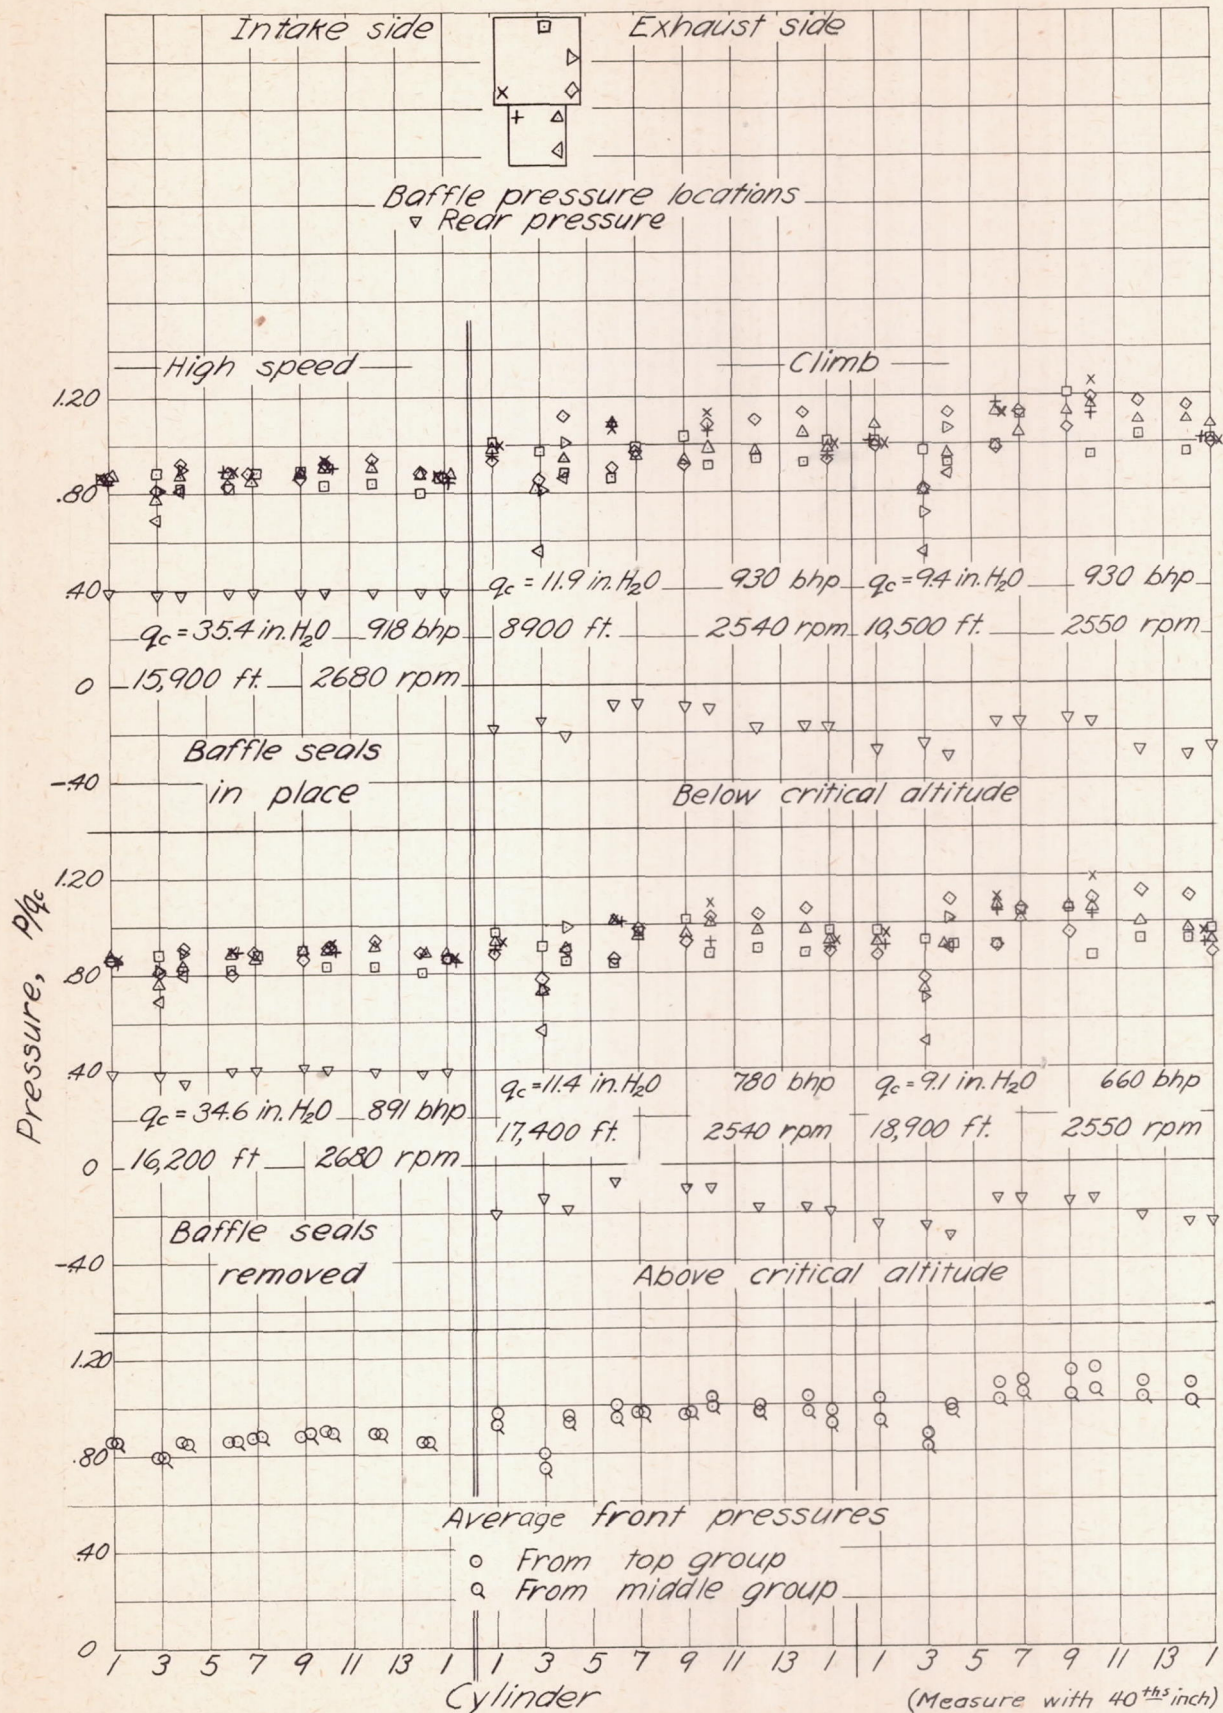 Intake side
Exhaust side
Baffle pressure locations
▿ Rear pressure
High speed
Climb
1.20
.80
.40
0
-.40
qc = 35.4 in. H2O 918 bhp
15,900 ft. 2680 rpm
qc = 11.9 in. H2O 930 bhp
8900 ft. 2540 rpm
qc = 9.4 in. H2O 930 bhp
10,500 ft. 2550 rpm
Baffle seals
in place
Below critical altitude
Pressure, P/qc
1.20
.80
.40
0
-.40
qc = 34.6 in. H2O 891 bhp
16,200 ft 2680 rpm
qc = 11.4 in. H2O 780 bhp
17,400 ft. 2540 rpm
qc = 9.1 in. H2O 660 bhp
18,900 ft. 2550 rpm
Baffle seals
removed
Above critical altitude
1.20
.80
.40
0
Average front pressures
From top group
From middle group
1 3 5 7 9 11 13 1 1 3 5 7 9 11 13 1 1 3 5 7 9 11 13 1
Cylinder
(Measure with 40ths inch)